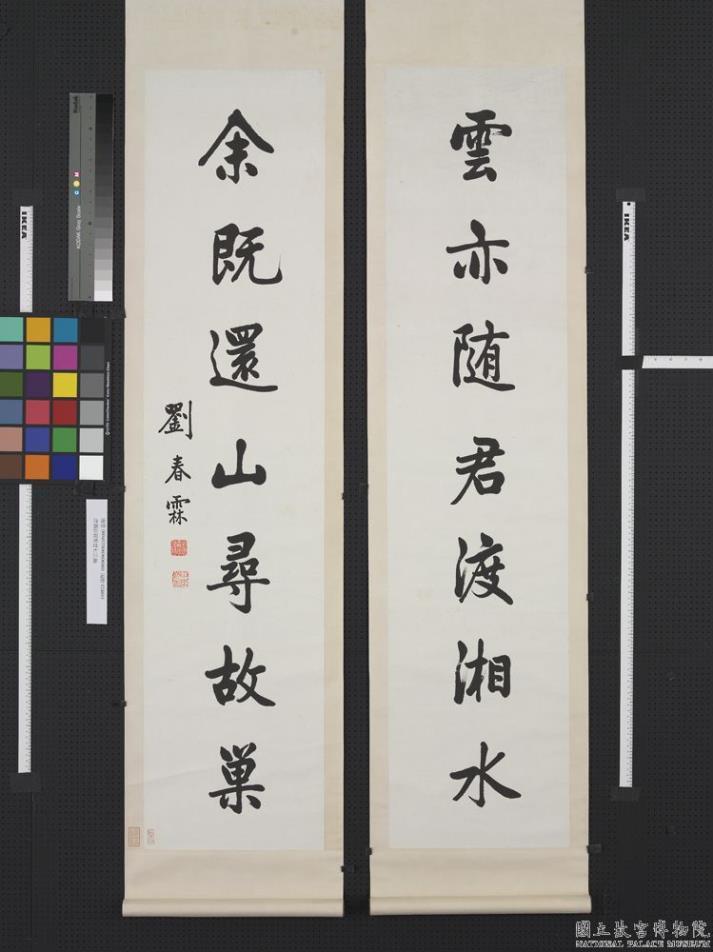 雲亦随君渡湘水
余既還山尋故巢
劉春霖
IKEA
IKEA
Kodak
國立故宮博物院
NATIONAL PALACE MUSEUM